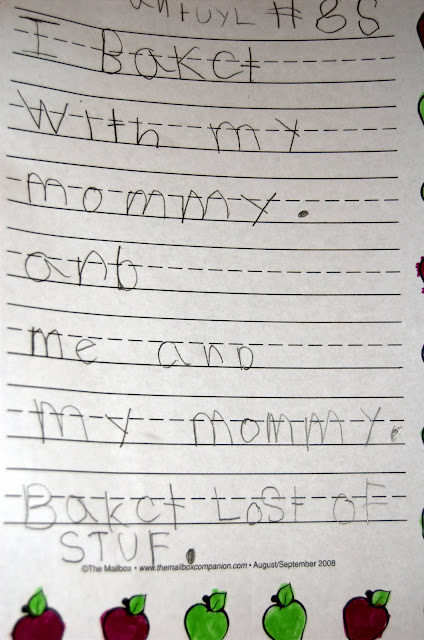 #88
I Bakct
With my
mommy.
anb
me and
my mommy.
Bakct Lost oF
STUF.
©The Mailbox • www.themailboxcompanion.com • August/September 2008